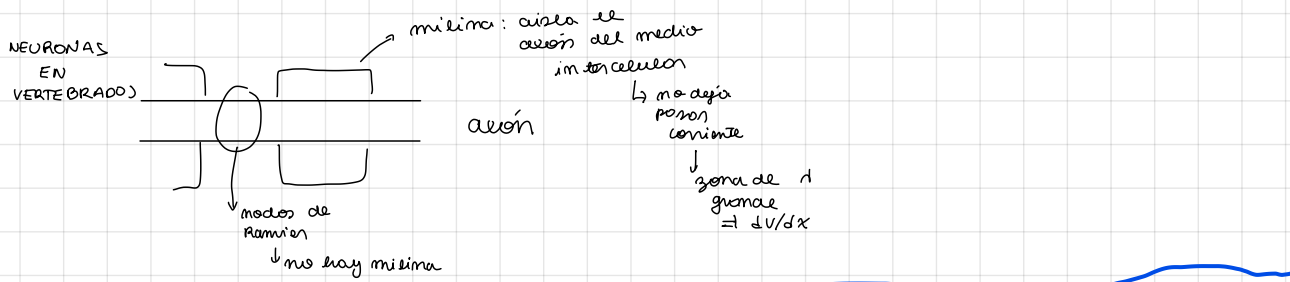 NEURONAS
EN
VERTEBRADOS
milina: aisla el
axón del medio
intercelular
↳ no deja
pasar
corriente
↓
zona de λ
grande
⇒ dV/dx
axón
nodos de
Ranvier
↓ no hay milina